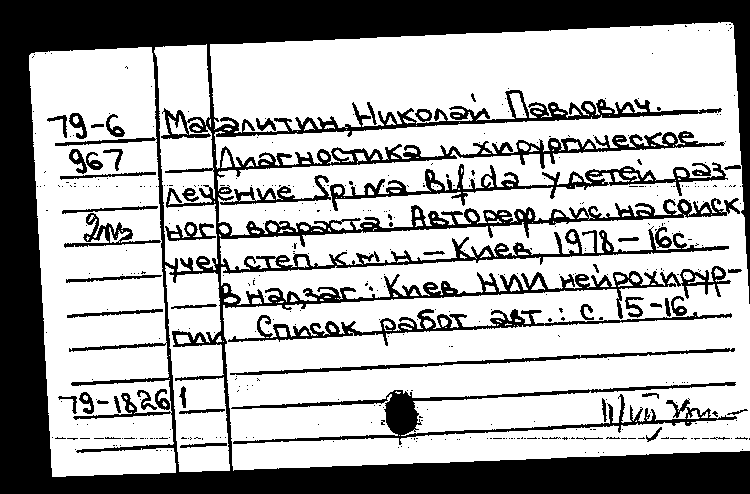 79-6 Масалитин, Николай Павлович.
967 Диагностика и хирургическое
лечение Spina Bifida у детей раз-
ного возраста: Автореф. дис. на соиск.
учен. степ. к.м.н. – Киев, 1978. – 16с.
В надзаг.: Киев. НИИ нейрохирур-
гии. Список работ авт.: с. 15-16.
79-18261